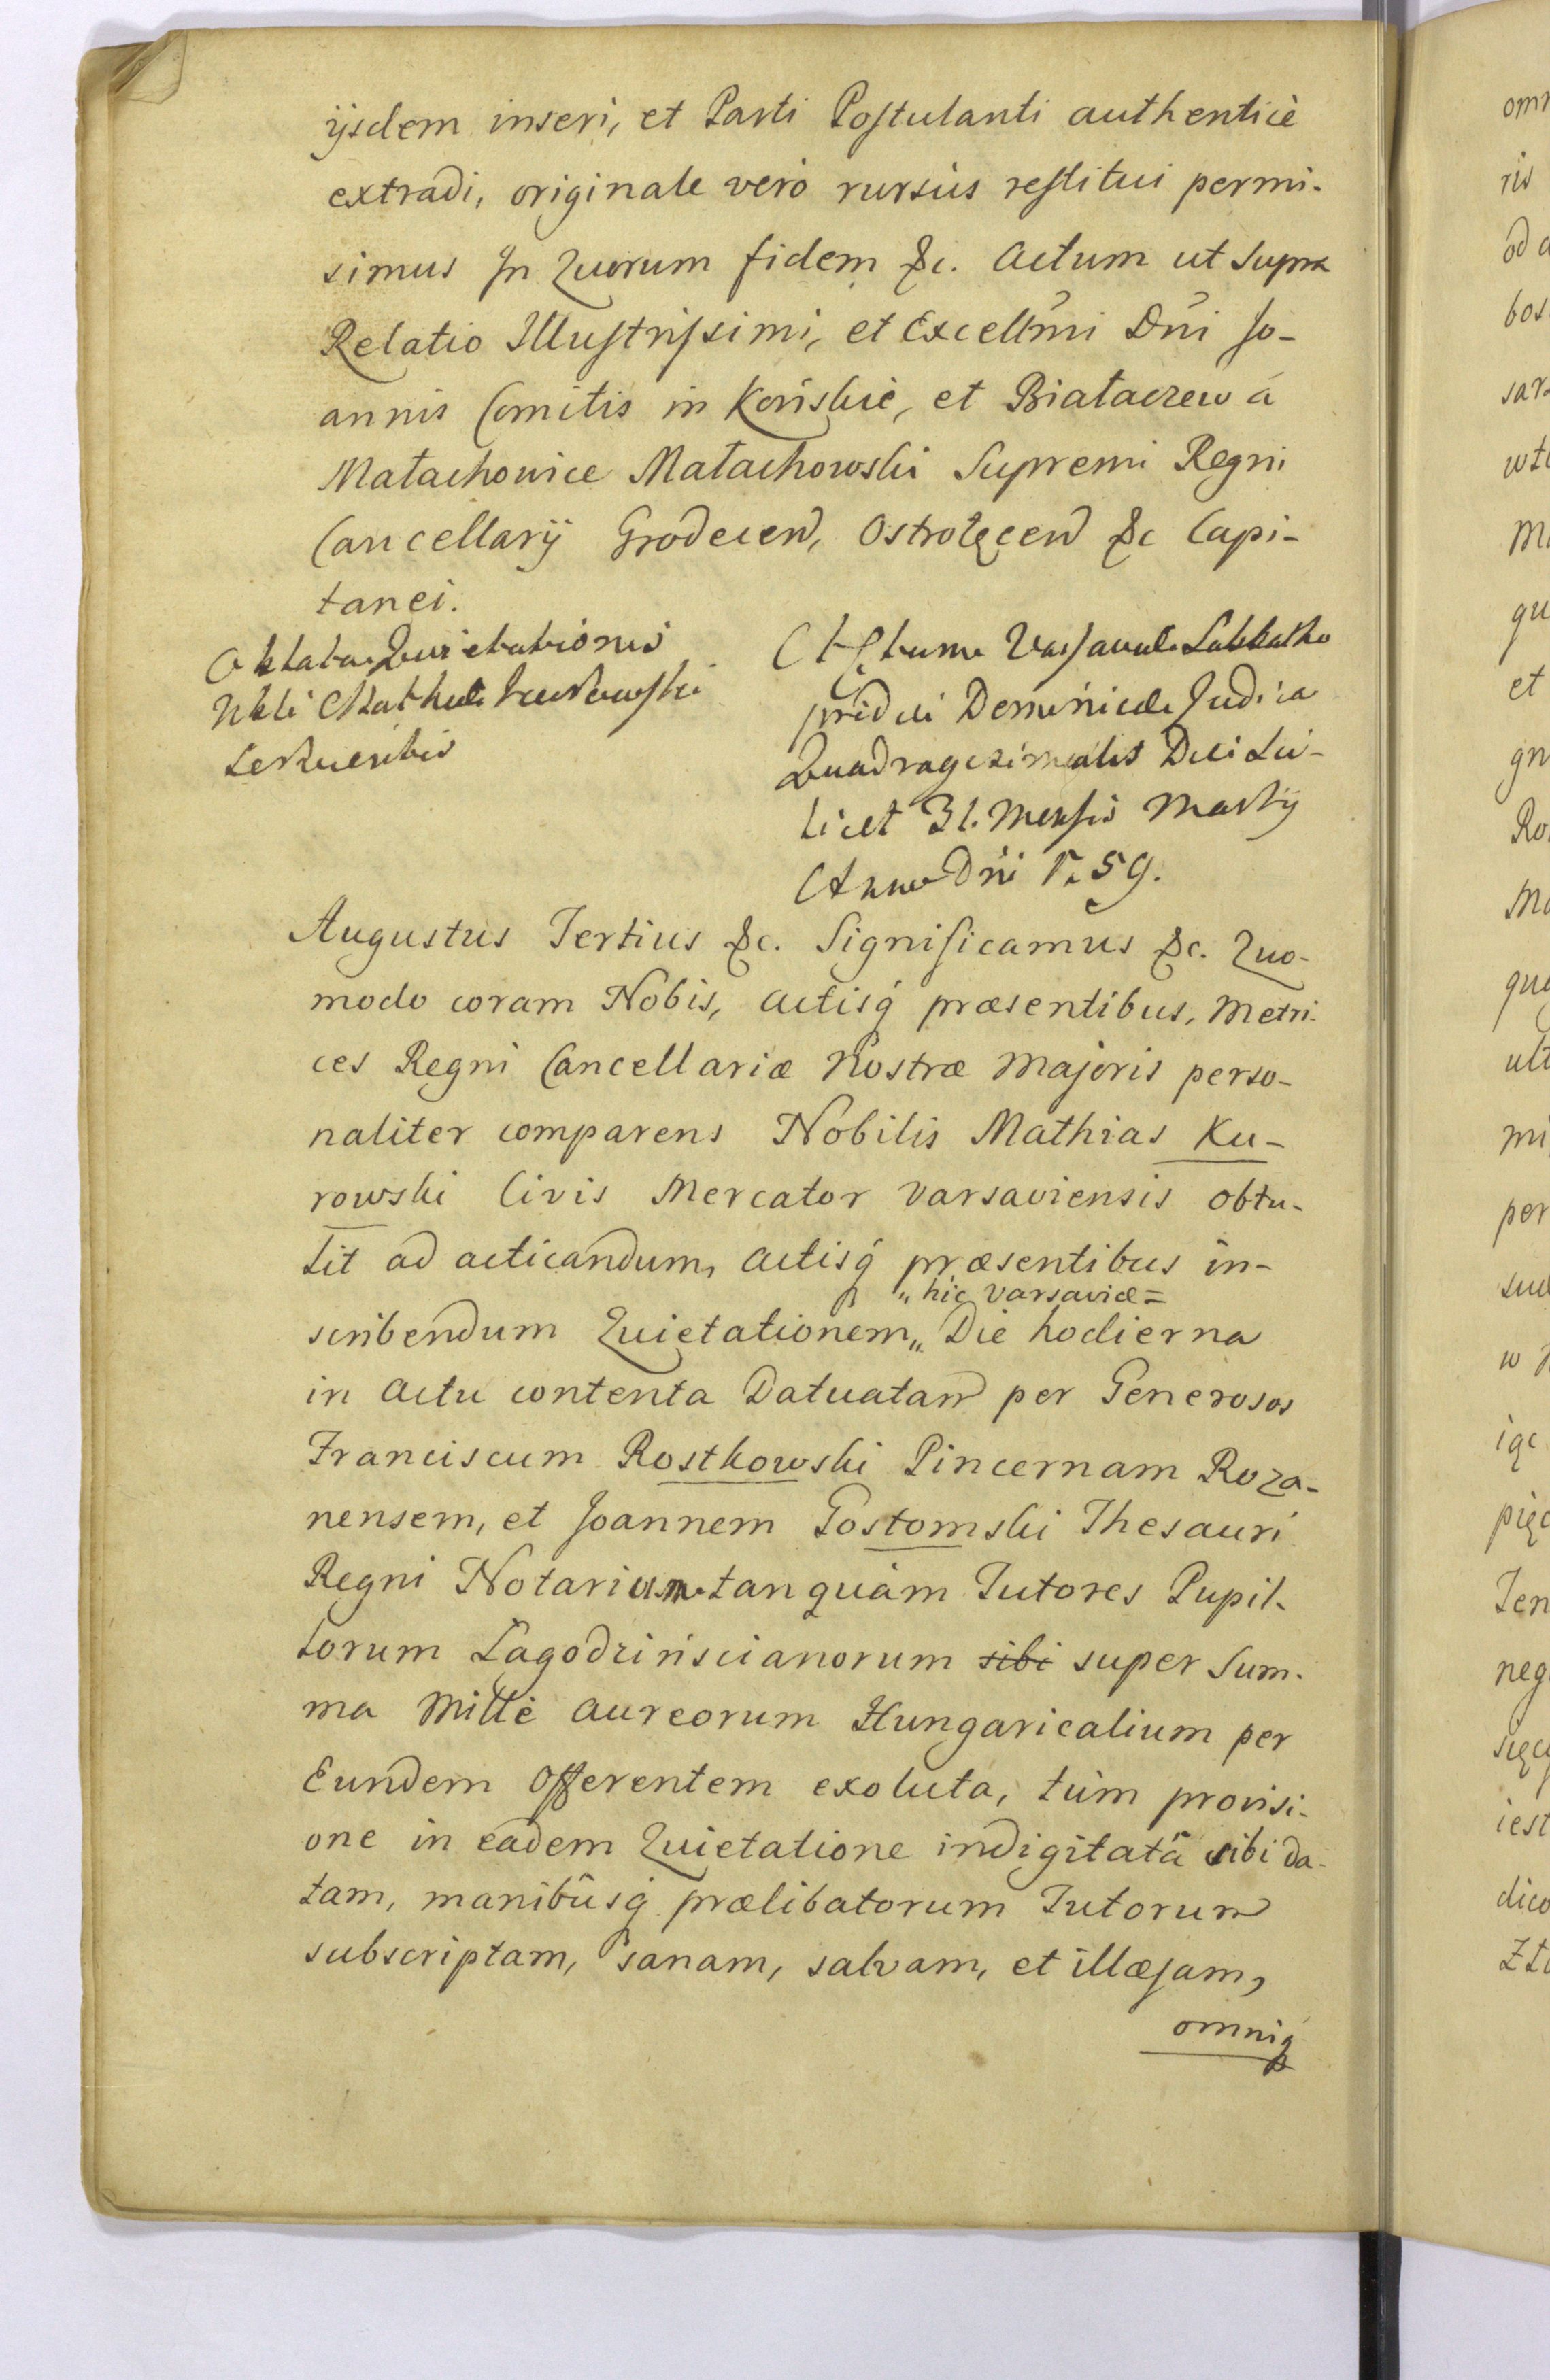 ijsdem inseri, et Parti Postulanti authenticè
extradi, originale verò rursùs restitui permi-
simus In Quorum fidem &c. Actum ut supra
Relatio Illustrissimi, et Excellmi Dni Jo-
annis Comitis in Końskie, et Białaczew á
Małachowice Małachowski Supremi Regni
Cancellarij Grodecen, Ostrołęcen &c Capi-
tanei.
Oblata Quietationis
Nbli Mathiæ Kurowski
servientis
Actum Varsaviæ Sabbatho
pridie Dominicæ Judica
Quadragesimalis Die sci-
licet 31. Mensis Martij
Anno Dni 1759.
Augustus Tertius &c. Significamus &c. Quo-
modo coram Nobis, Actisq præsentibus, Metri-
ces Regni Cancellariæ Nostræ Majoris perso-
naliter comparens Nobilis Mathias Ku-
rowski Civis Mercator Varsaviensis obtu-
lit ad acticandum, Actisq præsentibus in-
„ hic Varsaviæ =
scribendum Quietationem „ Die hodierna
in Actu contenta Datuatam per Generosos
Franciscum Rostkowski Pincernam Roza-
nensem, et Joannem Gostomski Thesauri
Regni Notarium tanquàm Tutores Pupil-
lorum Łagodzińscianorum sibi super Sum-
ma Mille Aureorum Hungaricalium per
Eundem Offerentem exoluta, tùm provisi-
one in eâdem Quietatione indigitatâ sibi da-
tam, manibûsq prælibatorum Tutorum
subscriptam, sanam, salvam, et illæsam,
omniq